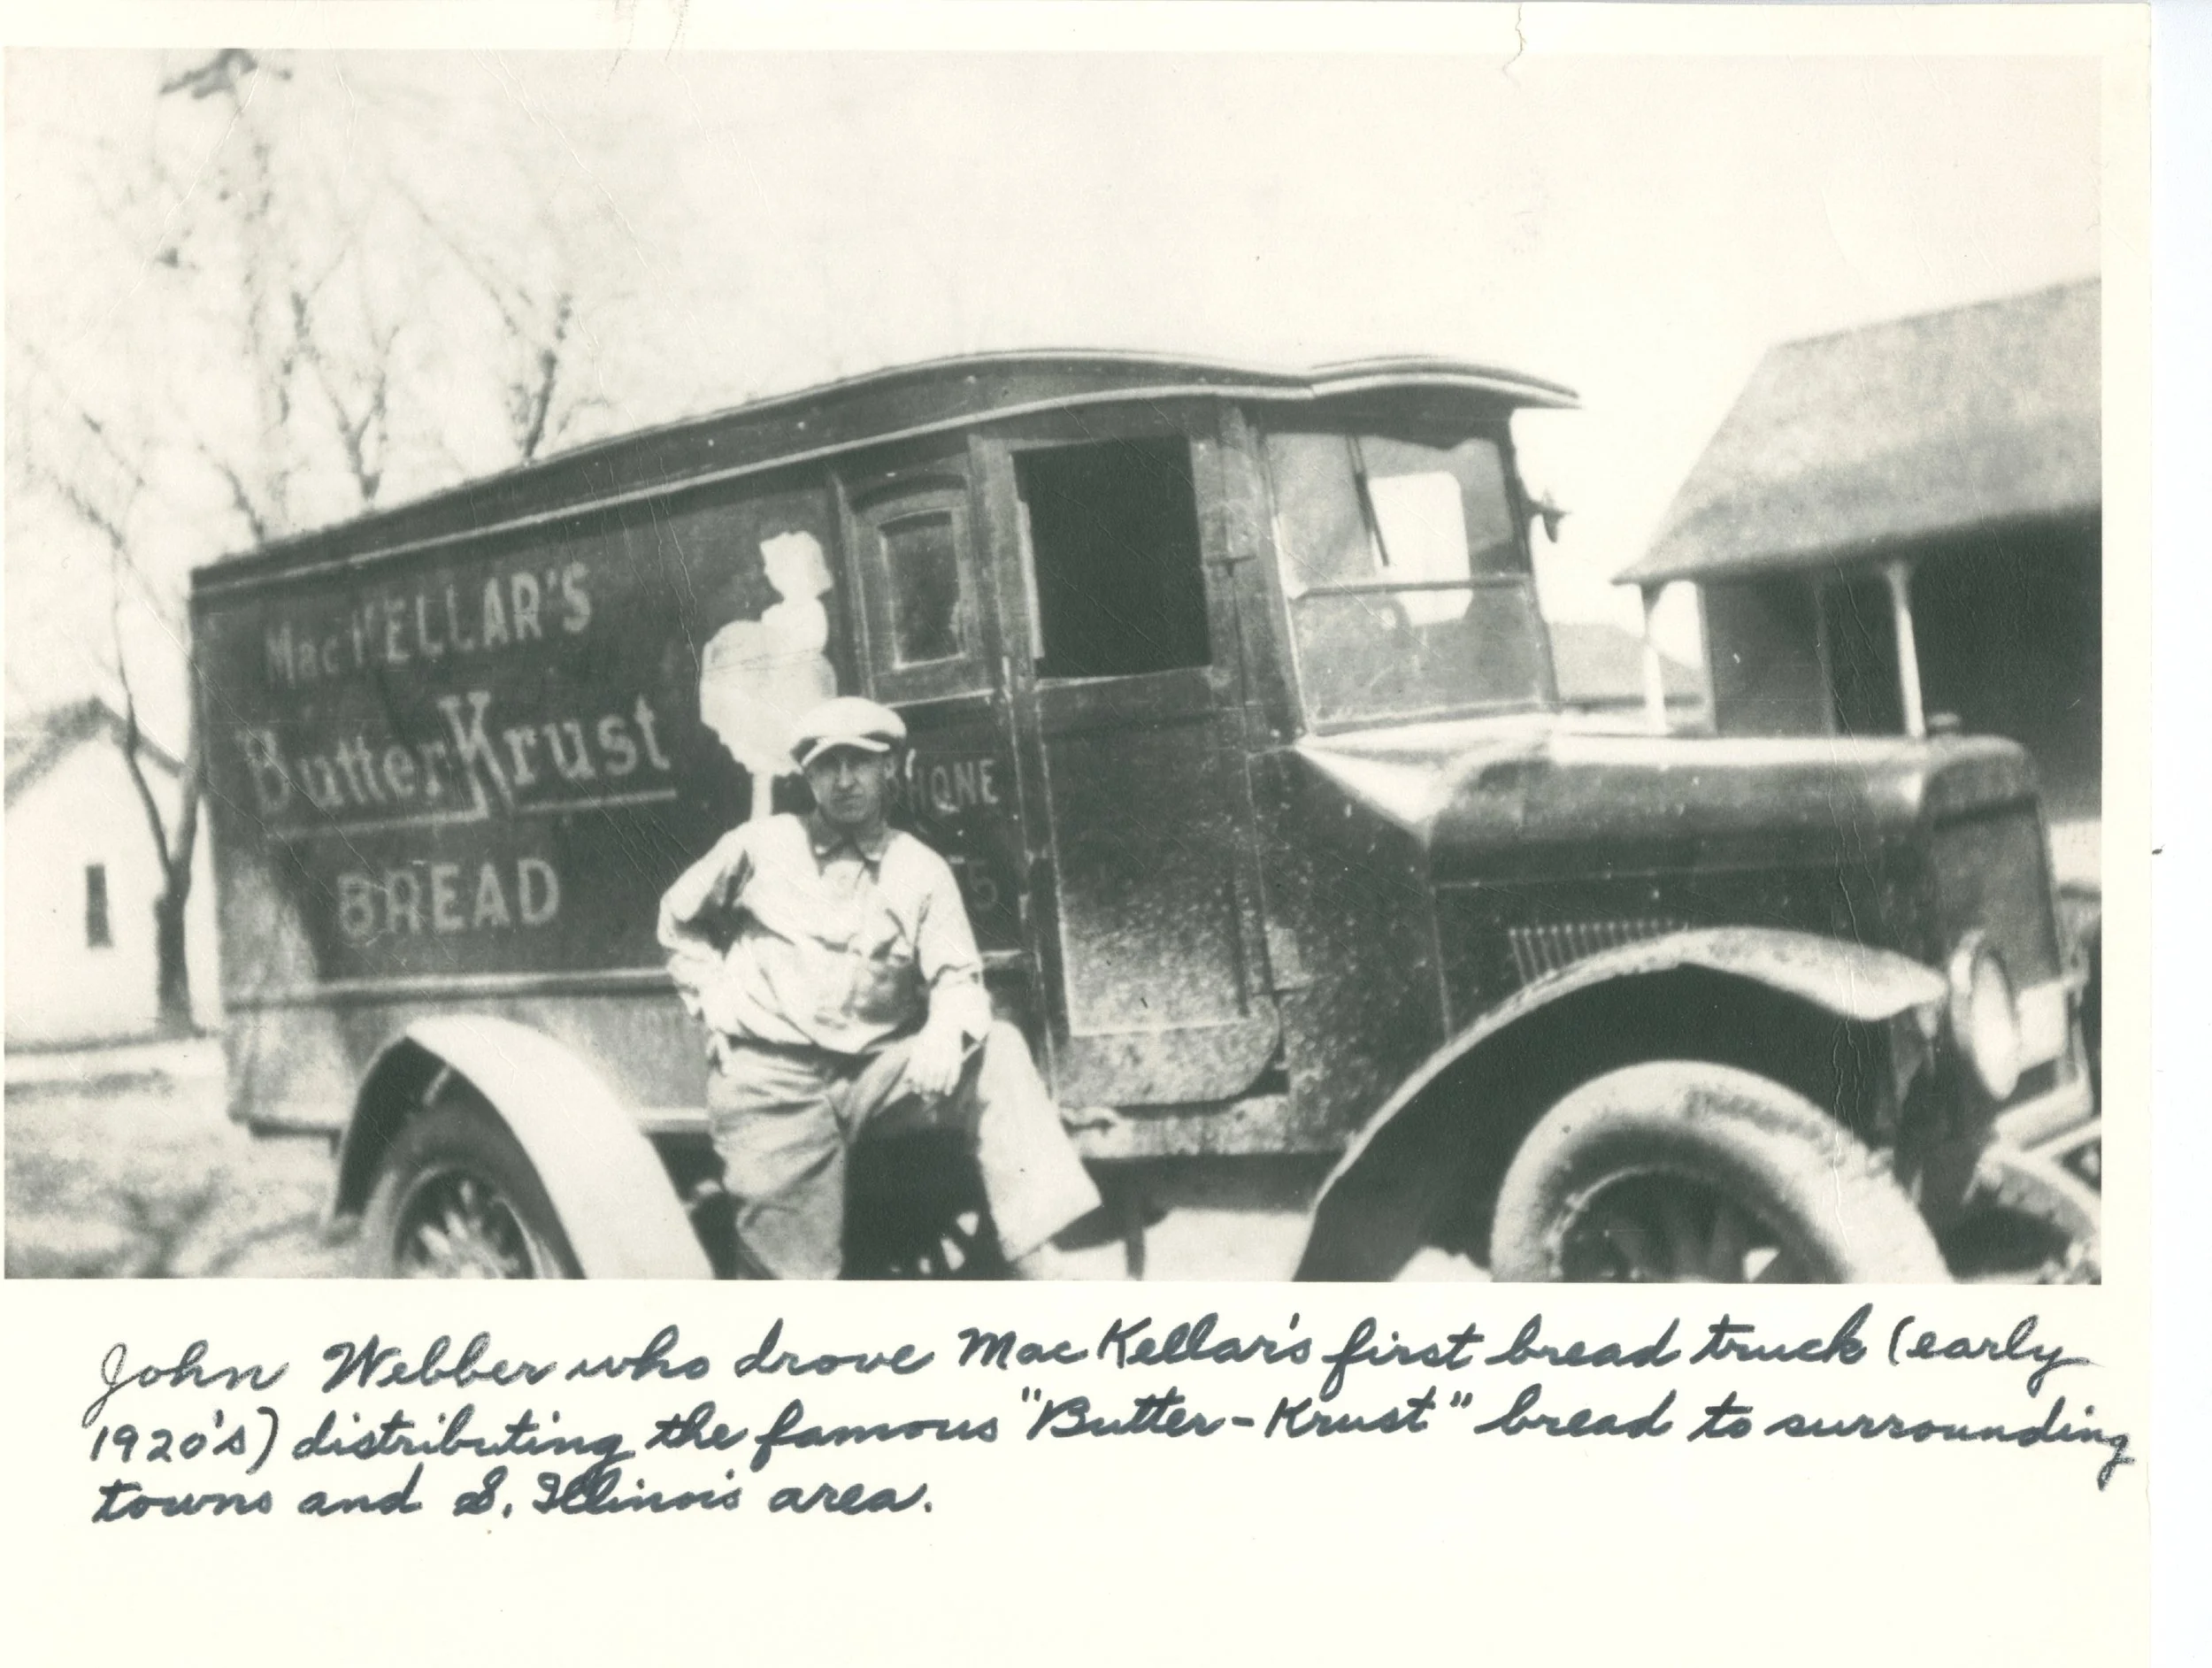 MacKELLAR'S
ButterKrust
BREAD
PHONE
John Webber who drove MacKellar's first bread truck (early
1920's) distributing the famous "Butter-Krust" bread to surrounding
towns and S. Illinois area.